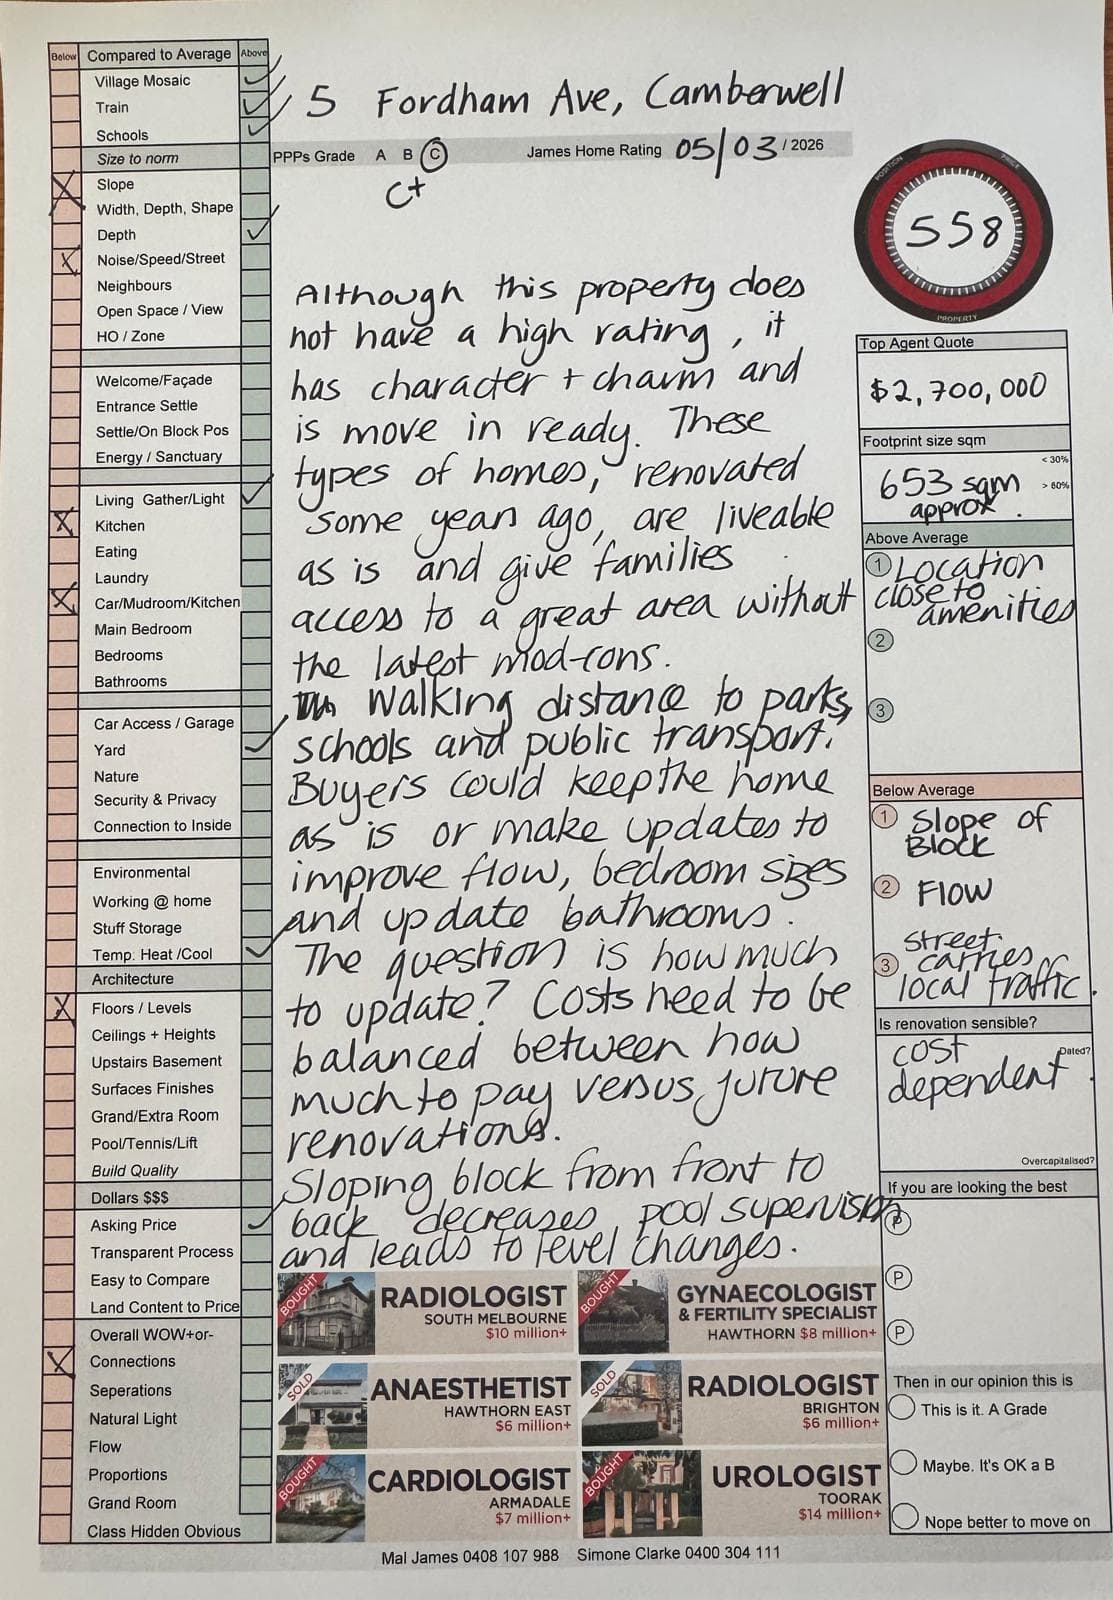 Below Compared to Average Above
Village Mosaic
Train
Schools
Size to norm
Slope
Width, Depth, Shape
Depth
Noise/Speed/Street
Neighbours
Open Space / View
HO / Zone
Welcome/Façade
Entrance Settle
Settle/On Block Pos
Energy / Sanctuary
Living Gather/Light
Kitchen
Eating
Laundry
Car/Mudroom/Kitchen
Main Bedroom
Bedrooms
Bathrooms
Car Access / Garage
Yard
Nature
Security & Privacy
Connection to Inside
Environmental
Working @ home
Stuff Storage
Temp. Heat /Cool
Architecture
Floors / Levels
Ceilings + Heights
Upstairs Basement
Surfaces Finishes
Grand/Extra Room
Pool/Tennis/Lift
Build Quality
Dollars $$$
Asking Price
Transparent Process
Easy to Compare
Land Content to Price
Overall WOW+or-
Connections
Seperations
Natural Light
Flow
Proportions
Grand Room
Class Hidden Obvious
5 Fordham Ave, Camberwell
PPPs Grade A B C James Home Rating 05/03 / 2026
C+
Although this property does
not have a high rating, it
has character + charm and
is move in ready. These
types of homes, renovated
some years ago, are liveable
as is and give families
access to a great area without
the latest mod-cons.
Walking distance to parks,
schools and public transport.
Buyers could keep the home
as is or make updates to
improve flow, bedroom sizes
and update bathrooms.
The question is how much
to update? Costs need to be
balanced between how
much to pay versus future
renovations.
Sloping block from front to
back decreases pool supervision
and leads to level changes.
POSITION PRICE
558
PROPERTY
Top Agent Quote
$2,700,000
Footprint size sqm
< 30%
653 sqm > 60%
approx.
Above Average
1 Location
close to
amenities
2
3
Below Average
1 Slope of
Block
2 Flow
3 Street
carries
local traffic.
Is renovation sensible?
Dated?
cost
dependent.
Overcapitalised?
If you are looking the best
P
P
P
Then in our opinion this is
This is it. A Grade
Maybe. It's OK a B
Nope better to move on
BOUGHT
RADIOLOGIST
SOUTH MELBOURNE
$10 million+
BOUGHT
GYNAECOLOGIST
& FERTILITY SPECIALIST
HAWTHORN $8 million+
SOLD
ANAESTHETIST
HAWTHORN EAST
$6 million+
SOLD
RADIOLOGIST
BRIGHTON
$6 million+
BOUGHT
CARDIOLOGIST
ARMADALE
$7 million+
BOUGHT
UROLOGIST
TOORAK
$14 million+
Mal James 0408 107 988 Simone Clarke 0400 304 111